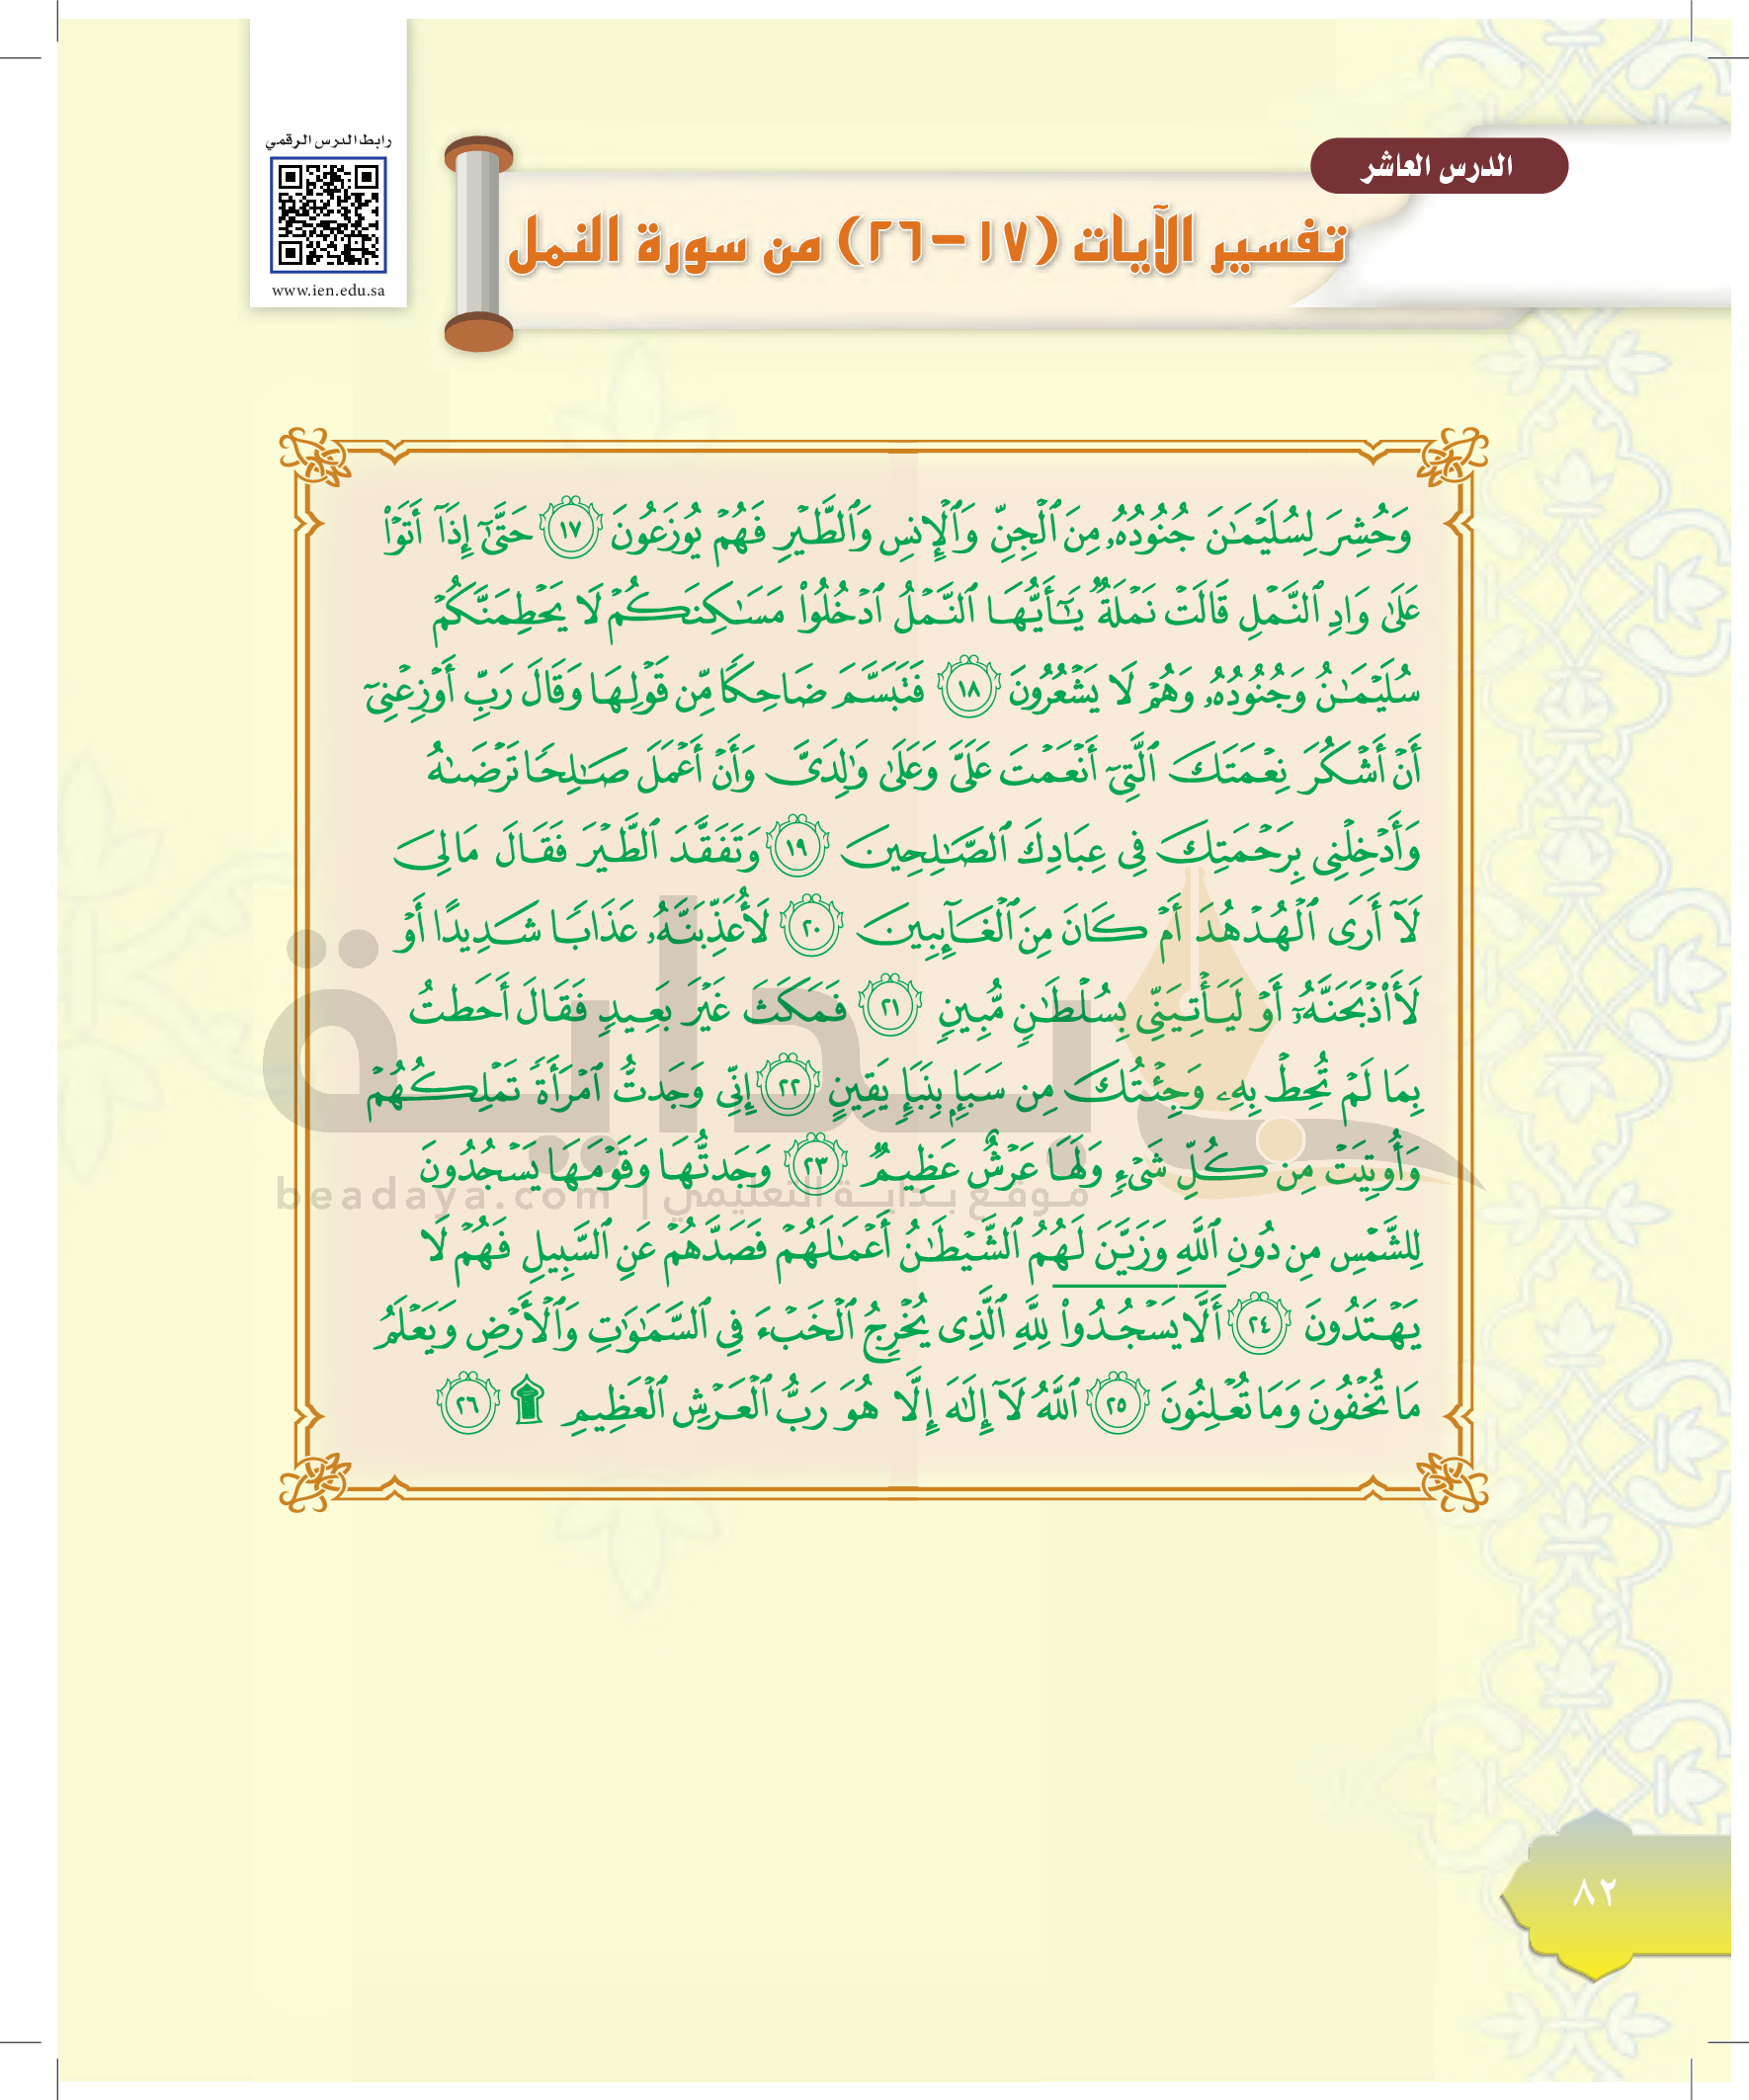 رابط الدرس الرقمي
www.ien.edu.sa
الدرس العاشر
تفسير الآيات (١٧-٢٦) من سورة النمل
وَحُشِرَ لِسُلَيْمَٰنَ جُنُودُهُۥ مِنَ ٱلْجِنِّ وَٱلْإِنسِ وَٱلطَّيْرِ فَهُمْ يُوزَعُونَ ١٧ حَتَّىٰٓ إِذَآ أَتَوْا۟
عَلَىٰ وَادِ ٱلنَّمْلِ قَالَتْ نَمْلَةٌ يَٰٓأَيُّهَا ٱلنَّمْلُ ٱدْخُلُوا۟ مَسَٰكِنَكُمْ لَا يَحْطِمَنَّكُمْ
سُلَيْمَٰنُ وَجُنُودُهُۥ وَهُمْ لَا يَشْعُرُونَ ١٨ فَتَبَسَّمَ ضَاحِكًا مِّن قَوْلِهَا وَقَالَ رَبِّ أَوْزِعْنِىٓ
أَنْ أَشْكُرَ نِعْمَتَكَ ٱلَّتِىٓ أَنْعَمْتَ عَلَىَّ وَعَلَىٰ وَٰلِدَىَّ وَأَنْ أَعْمَلَ صَٰلِحًا تَرْضَىٰهُ
وَأَدْخِلْنِى بِرَحْمَتِكَ فِى عِبَادِكَ ٱلصَّٰلِحِينَ ١٩ وَتَفَقَّدَ ٱلطَّيْرَ فَقَالَ مَا لِىَ
لَآ أَرَى ٱلْهُدْهُدَ أَمْ كَانَ مِنَ ٱلْغَآئِبِينَ ٢٠ لَأُعَذِّبَنَّهُۥ عَذَابًا شَدِيدًا أَوْ
لَأَا۟ذْبَحَنَّهُۥٓ أَوْ لَيَأْتِيَنِّى بِسُلْطَٰنٍ مُّبِينٍ ٢١ فَمَكَثَ غَيْرَ بَعِيدٍ فَقَالَ أَحَطتُ
بِمَا لَمْ تُحِطْ بِهِۦ وَجِئْتُكَ مِن سَبَإٍۭ بِنَبَإٍ يَقِينٍ ٢٢ إِنِّى وَجَدتُّ ٱمْرَأَةً تَمْلِكُهُمْ
وَأُوتِيَتْ مِن كُلِّ شَىْءٍ وَلَهَا عَرْشٌ عَظِيمٌ ٢٣ وَجَدتُّهَا وَقَوْمَهَا يَسْجُدُونَ
لِلشَّمْسِ مِن دُونِ ٱللَّهِ وَزَيَّنَ لَهُمُ ٱلشَّيْطَٰنُ أَعْمَٰلَهُمْ فَصَدَّهُمْ عَنِ ٱلسَّبِيلِ فَهُمْ لَا
يَهْتَدُونَ ٢٤ أَلَّا يَسْجُدُوا۟ لِلَّهِ ٱلَّذِى يُخْرِجُ ٱلْخَبْءَ فِى ٱلسَّمَٰوَٰتِ وَٱلْأَرْضِ وَيَعْلَمُ
مَا تُخْفُونَ وَمَا تُعْلِنُونَ ٢٥ ٱللَّهُ لَآ إِلَٰهَ إِلَّا هُوَ رَبُّ ٱلْعَرْشِ ٱلْعَظِيمِ ۩ ٢٦
بداية
موقع بداية التعليمي | beadaya.com
٨٢